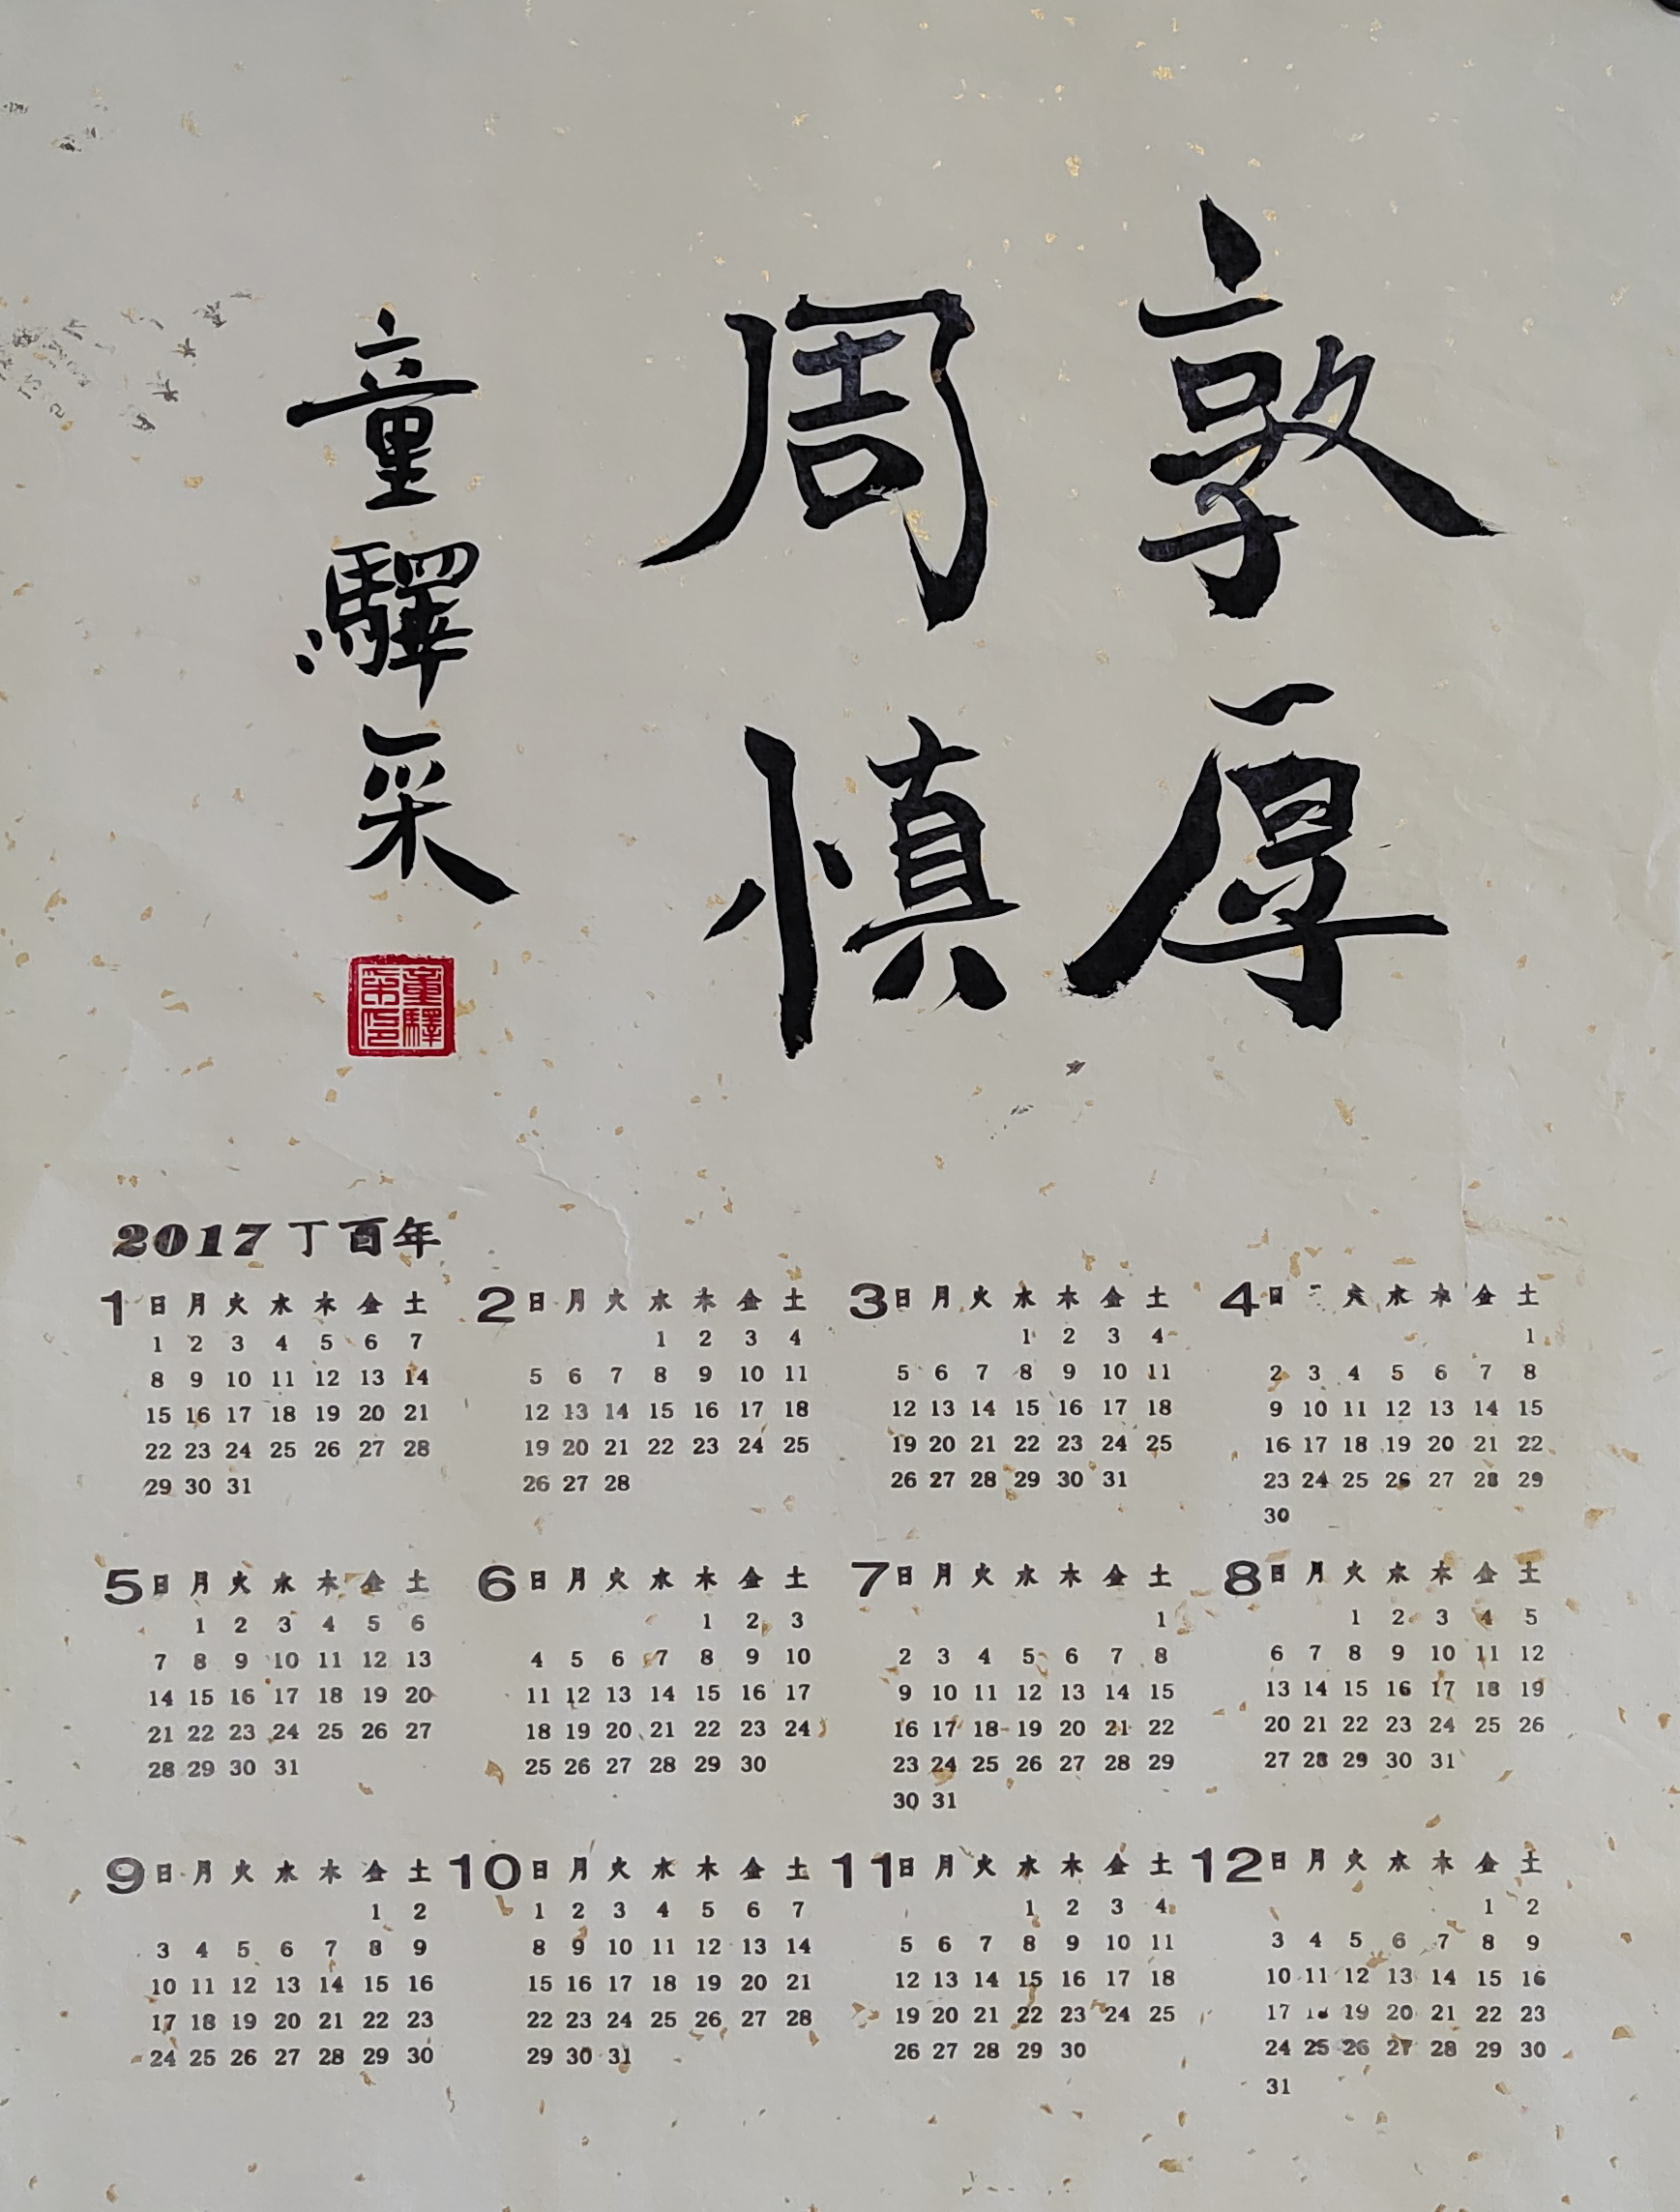 敦厚
周慎
童驛采
童驛
采印
2017 丁酉年
1 日 月 火 水 木 金 土
1 2 3 4 5 6 7
8 9 10 11 12 13 14
15 16 17 18 19 20 21
22 23 24 25 26 27 28
29 30 31
2 日 月 火 水 木 金 土
1 2 3 4
5 6 7 8 9 10 11
12 13 14 15 16 17 18
19 20 21 22 23 24 25
26 27 28
3 日 月 火 水 木 金 土
1 2 3 4
5 6 7 8 9 10 11
12 13 14 15 16 17 18
19 20 21 22 23 24 25
26 27 28 29 30 31
4 日 火 水 木 金 土
1
2 3 4 5 6 7 8
9 10 11 12 13 14 15
16 17 18 19 20 21 22
23 24 25 26 27 28 29
30
5 日 月 火 水 木 金 土
1 2 3 4 5 6
7 8 9 10 11 12 13
14 15 16 17 18 19 20
21 22 23 24 25 26 27
28 29 30 31
6 日 月 火 水 木 金 土
1 2 3
4 5 6 7 8 9 10
11 12 13 14 15 16 17
18 19 20 21 22 23 24
25 26 27 28 29 30
7 日 月 火 水 木 金 土
1
2 3 4 5 6 7 8
9 10 11 12 13 14 15
16 17 18 19 20 21 22
23 24 25 26 27 28 29
30 31
8 日 月 火 水 木 金 土
1 2 3 4 5
6 7 8 9 10 11 12
13 14 15 16 17 18 19
20 21 22 23 24 25 26
27 28 29 30 31
9 日 月 火 水 木 金 土
1 2
3 4 5 6 7 8 9
10 11 12 13 14 15 16
17 18 19 20 21 22 23
24 25 26 27 28 29 30
10 日 月 火 水 木 金 土
1 2 3 4 5 6 7
8 9 10 11 12 13 14
15 16 17 18 19 20 21
22 23 24 25 26 27 28
29 30 31
11 日 月 火 水 木 金 土
1 2 3 4
5 6 7 8 9 10 11
12 13 14 15 16 17 18
19 20 21 22 23 24 25
26 27 28 29 30
12 日 月 火 水 木 金 土
1 2
3 4 5 6 7 8 9
10 11 12 13 14 15 16
17 18 19 20 21 22 23
24 25 26 27 28 29 30
31